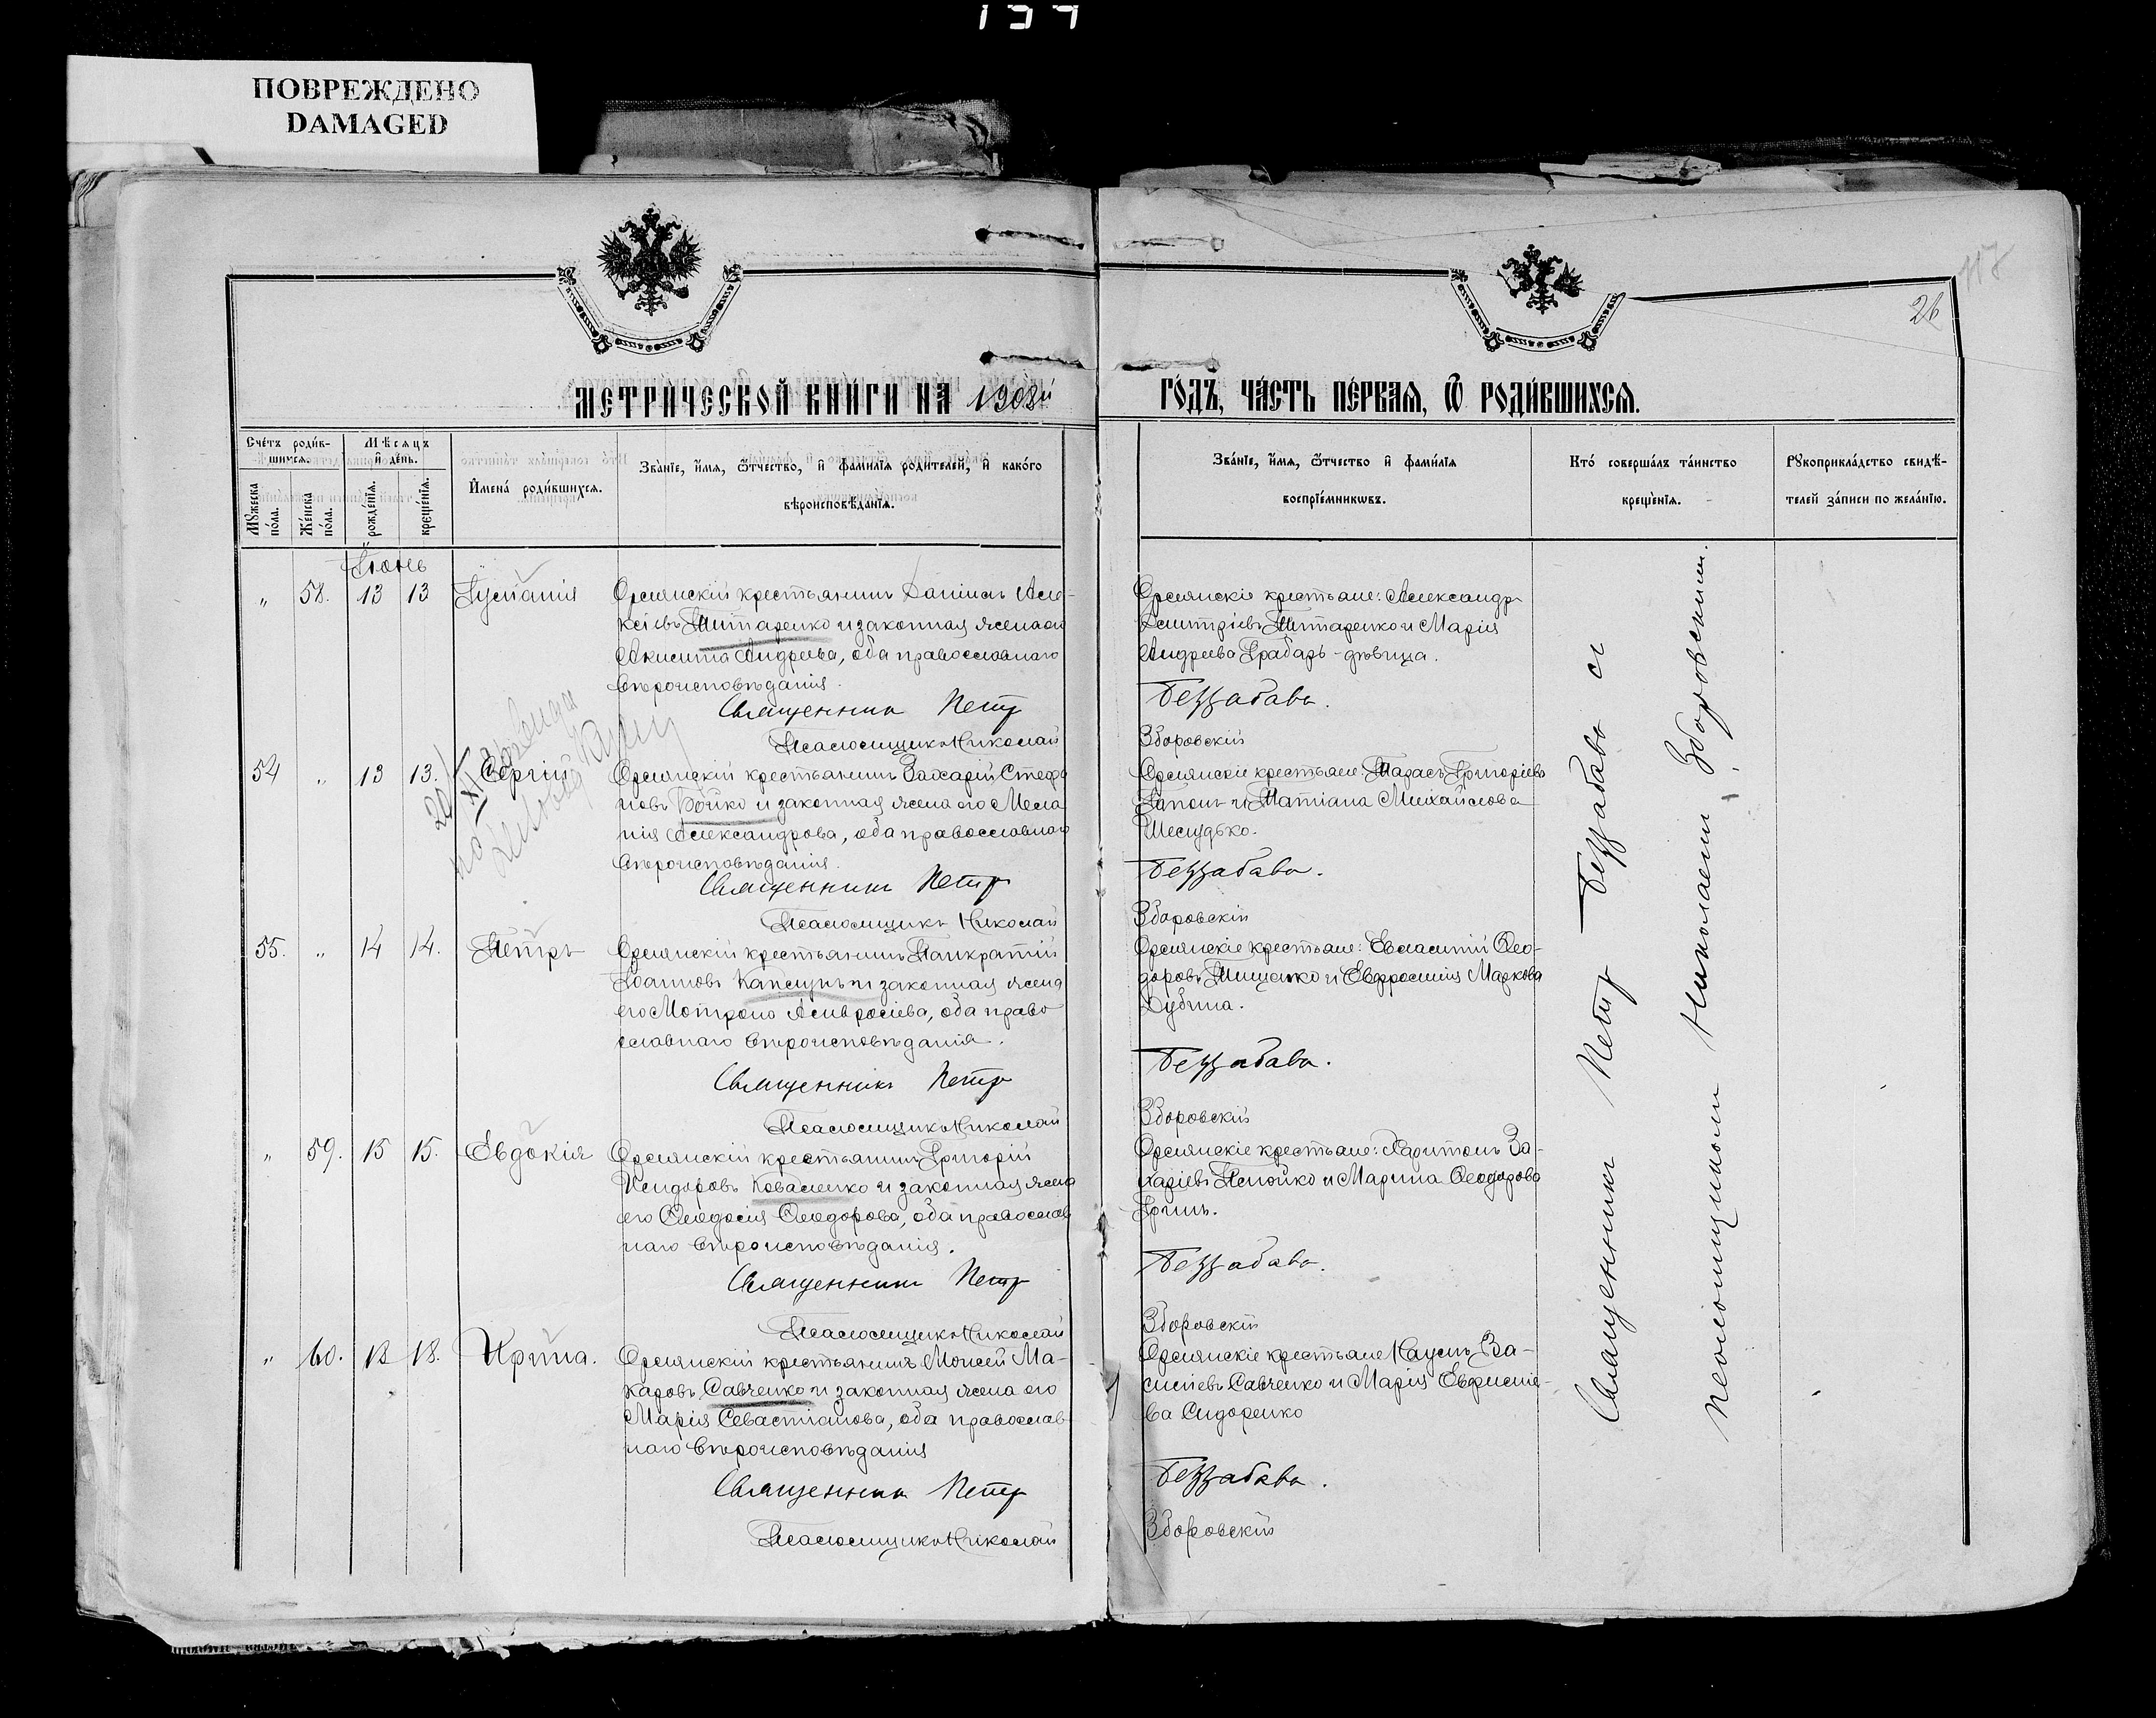 ПОВРЕЖДЕНО
DAMAGED
117
26
МЕТРИЧЕСКОЙ КНИГИ НА 1908й
ГОДЪ, ЧАСТЬ ПЕРВАЯ, Ѿ РОДИВШИХСЯ.
Счетъ родив-
шихся.
Мужеска пола.
Женска пола.
Мѣсяцъ
и день.
рожденія.
крещенія.
Имена родившихся.
Званіе, имя, отчество, и фамилія родителей, и какого
вѣроисповѣданія.
Званіе, имя, отчество и фамилія
воспріемниковъ.
Кто совершалъ таинство
крещенія.
Рукоприкладство свидѣ-
телей записи по желанію.
Іюнь
„ 58. 13 13 Іуліанія
крестьянинъ Даніилъ Але-
ксіевъ Титаренко и законная жена его
Акилина Андреева, оба православнаго
вѣроисповѣданія.
Священникъ Петр
Псаломщикъ Николай
крестьяне: Александръ
Димитріевъ Титаренко и Марія
Андреева Грабаръ - дѣвица.
Беззабава.
Зборовскій
54 „ 13 13. Сергій
крестьянинъ Захарій Стефа
новъ Бойко и законная жена его Мела
нія Александрова, оба православнаго
вѣроисповѣданія.
Священникъ Петр
Псаломщикъ Николай
крестьяне: Тарасъ Григоріевъ
Гапонъ и Татіана Михайлова
Шелудько.
Беззабава.
Зборовскій
20/XI
55. „ 14 14. Петръ
крестьянинъ Панкратій
Іоанновъ Капсунъ и законная жена
его Мотрона Амвросіева, оба право
славнаго вѣроисповѣданія.
Священникъ Петр
Псаломщикъ Николай
крестьяне: Евлампій Ѳео-
доровъ Тищенко и Евфросинія Маркова
Дубина.
Беззабава.
Зборовскій
„ 59. 15 15. Евдокія
крестьянинъ Григорій
Исидоровъ Коваленко и законная жена
его Ѳеодосія Ѳеодорова, оба православ
наго вѣроисповѣданія.
Священникъ Петр
Псаломщикъ Николай
крестьяне: Харитонъ За-
харіевъ и Марина Ѳеодорова
Гринь.
Беззабава.
Зборовскій
„ 60. 18 18. Ирина.
крестьянинъ Моисей Ма-
каровъ Савченко и законная жена его
Марія Севастіанова, оба православ
наго вѣроисповѣданія
Священникъ Петр
Псаломщикъ Николай
крестьяне Наумъ Ва-
силіевъ Савченко и Марія Евфиміе-
ва Сидоренко
Беззабава.
Зборовскій
Священникъ Петр Беззабава съ
псаломщикомъ Николаемъ Зборовскимъ.